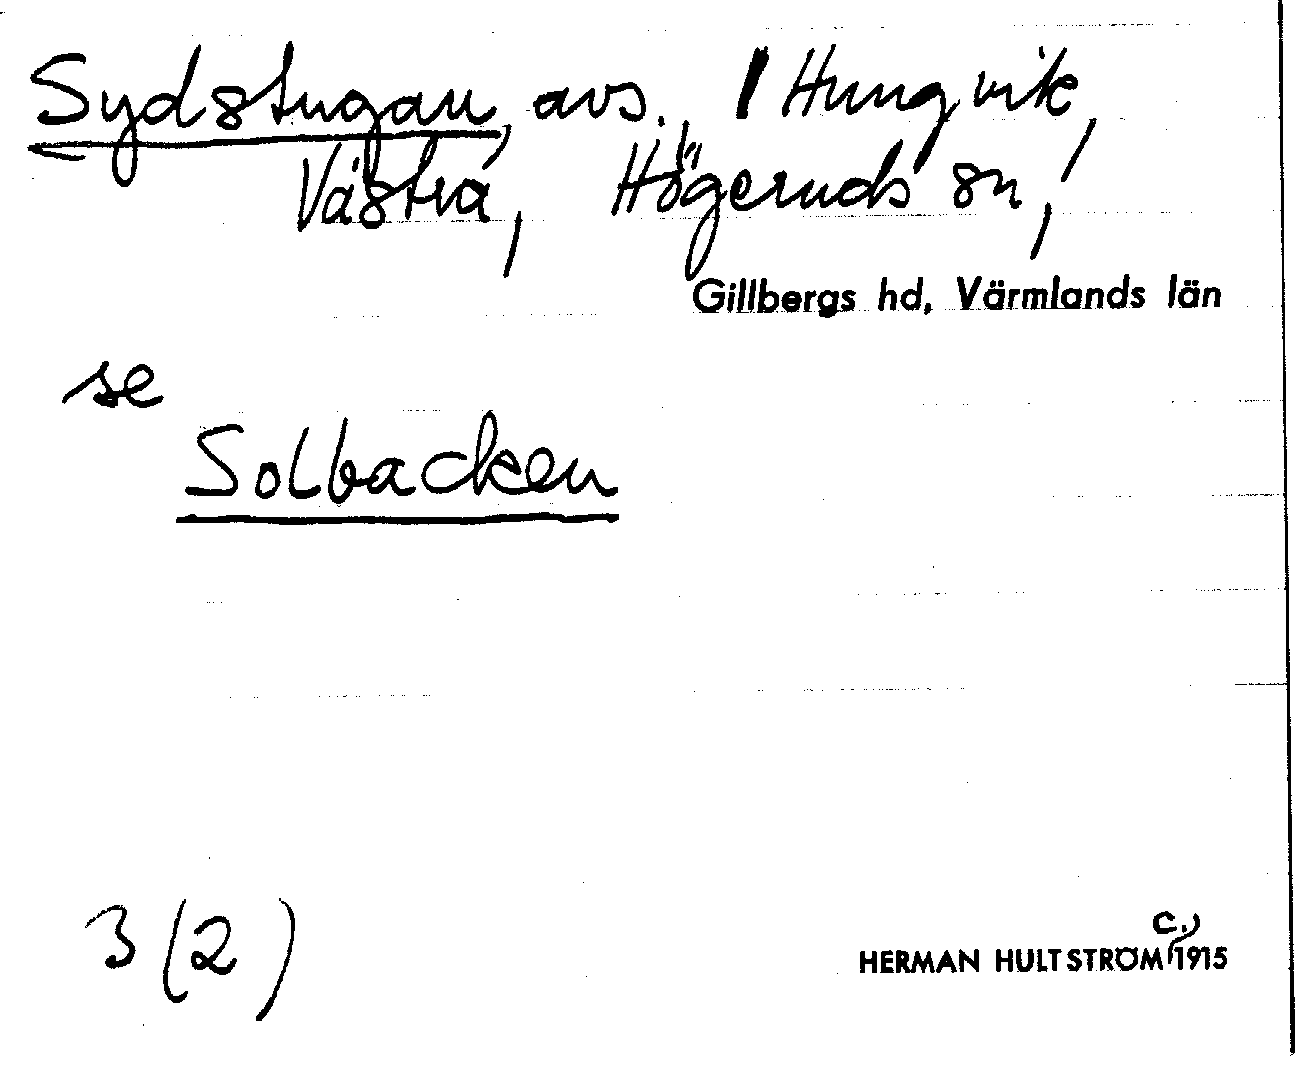 Sydstugan, avs. 1 Hungvik,
Västra, Högeruds sn,
Gillbergs hd, Värmlands län
se
Solbacken
3 (2)
c.
HERMAN HULTSTRÖM 1915